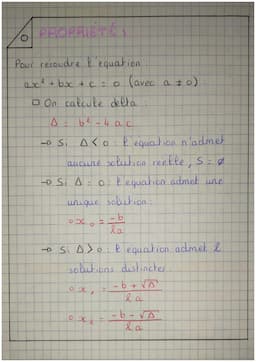 PROPRIÉTÉ :
Pour resoudre l'équation
ax² + bx + c = 0 (avec a ≠ 0)
□ On calcule delta :
Δ = b² - 4 a c
→ Si Δ < 0 : l'équation n'admet
aucune solution reelle, S = ∅
→ Si Δ = 0 : l'equation admet une
unique solution :
∘ x₀ = -b / 2a
→ Si Δ > 0 : l'equation admet 2
solutions distinctes
∘ x₁ = -b + √Δ / 2a
∘ x₂ = -b - √Δ / 2a